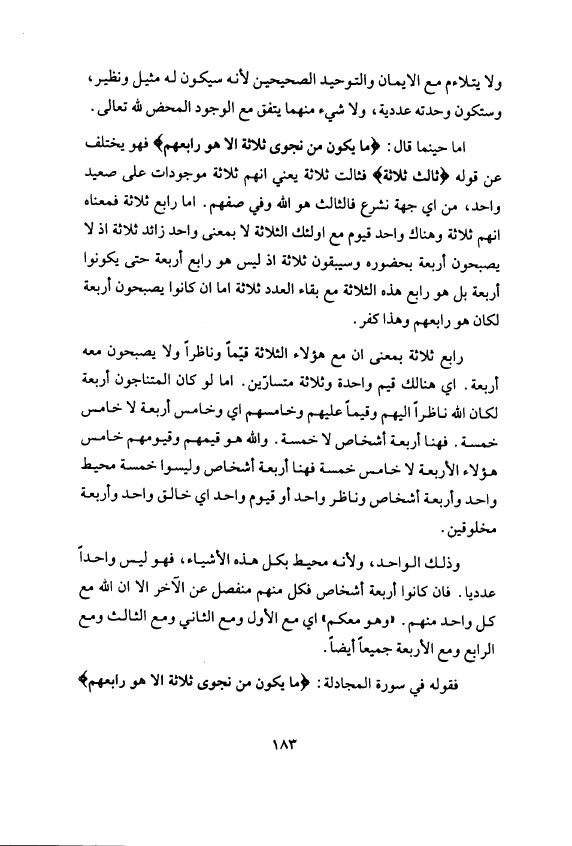 ولا يتلاءم مع الايمان والتوحيد الصحيحين لأنه سيكون له مثيل ونظير،
وستكون وحدته عددية، ولا شيء منهما يتفق مع الوجود المحض لله تعالى.
اما حينما قال: ﴿ما يكون من نجوى ثلاثة الا هو رابعهم﴾ فهو يختلف
عن قوله ﴿ثالث ثلاثة﴾ فثالث ثلاثة يعني انهم ثلاثة موجودات على صعيد
واحد، من اي جهة نشرع فالثالث هو الله وفي صفهم. اما رابع ثلاثة فمعناه
انهم ثلاثة وهناك واحد قيوم مع اولئك الثلاثة لا بمعنى واحد زائد ثلاثة اذ لا
يصبحون أربعة بحضوره وسيبقون ثلاثة اذ ليس هو رابع أربعة حتى يكونوا
أربعة بل هو رابع هذه الثلاثة مع بقاء العدد ثلاثة اما ان كانوا يصبحون أربعة
لكان هو رابعهم وهذا كفر.
رابع ثلاثة بمعنى ان مع هؤلاء الثلاثة قيّماً وناظراً ولا يصبحون معه
أربعة. اي هنالك قيم واحدة وثلاثة متسارّين. اما لو كان المتناجون أربعة
لكان الله ناظراً اليهم وقيماً عليهم وخامسهم اي وخامس أربعة لا خامس
خمسة. فهنا أربعة أشخاص لا خمسة. والله هو قيمهم وقيومهم خامس
هؤلاء الأربعة لا خامس خمسة فهنا أربعة أشخاص وليسوا خمسة محيط
واحد وأربعة أشخاص وناظر واحد أو قيوم واحد اي خالق واحد وأربعة
مخلوقين.
وذلك الواحد، ولأنه محيط بكل هذه الأشياء، فهو ليس واحداً
عدديا. فان كانوا أربعة أشخاص فكل منهم منفصل عن الآخر الا ان الله مع
كل واحد منهم. «وهو معكم» اي مع الأول ومع الثاني ومع الثالث ومع
الرابع ومع الأربعة جميعاً أيضاً.
فقوله في سورة المجادلة: ﴿ما يكون من نجوى ثلاثة الا هو رابعهم﴾
١٨٣